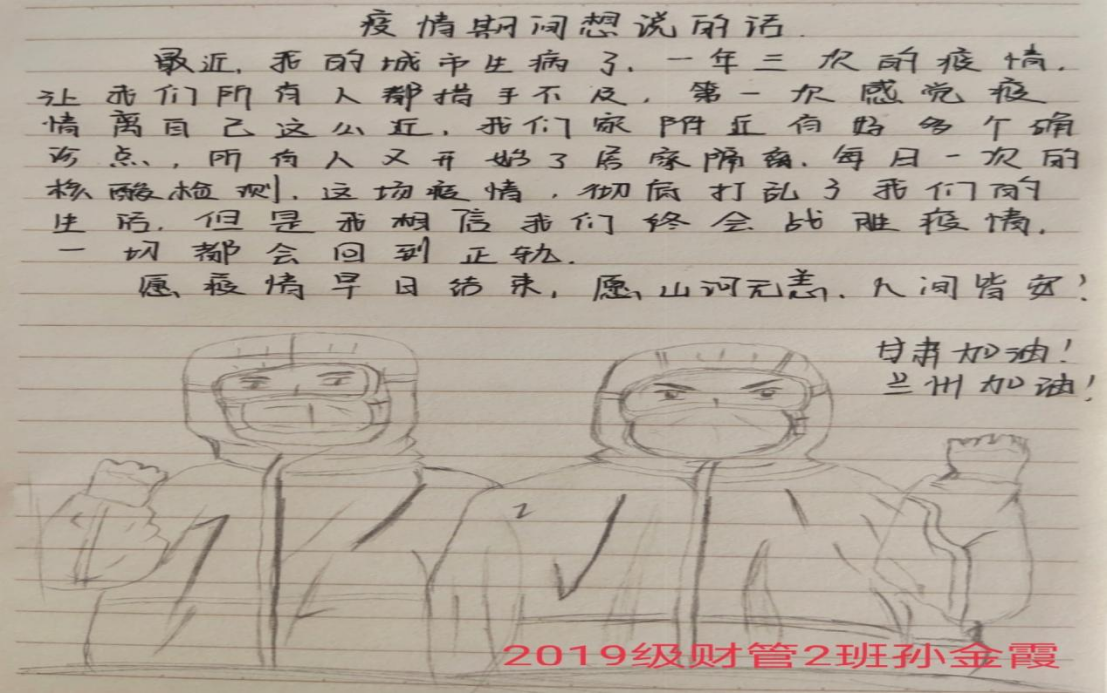 疫情期间想说的话.
最近,我的城市生病了.一年三次的疫情.
让我们所有人都措手不及.第一次感觉疫
情离自己这么近.我们家附近有好多个确
诊点,所有人又开始了居家隔离.每日一次的
核酸检测.这场疫情,彻底打乱了我们的
生活.但是我相信我们终会战胜疫情.
一切都会回到正轨.
愿疫情早日结束,愿山河无恙.人间皆安!
甘肃加油!
兰州加油!
2019级财管2班孙金霞